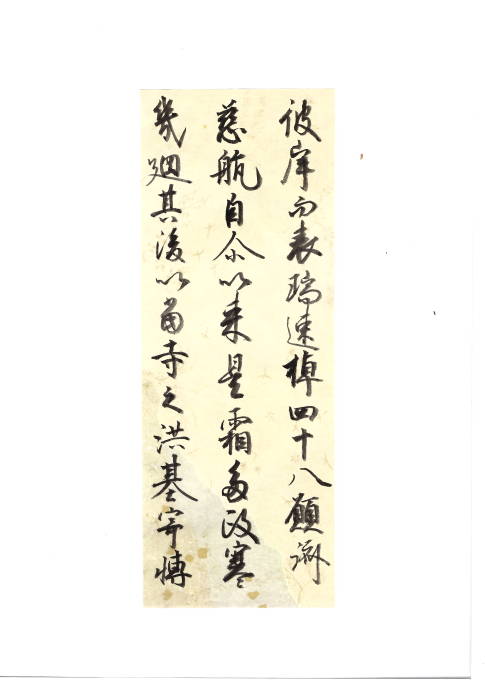 彼岸而表瑞速棹四十八願
慈航自尒以来星霜多改寒
幾廻其後以當寺之洪基寄博